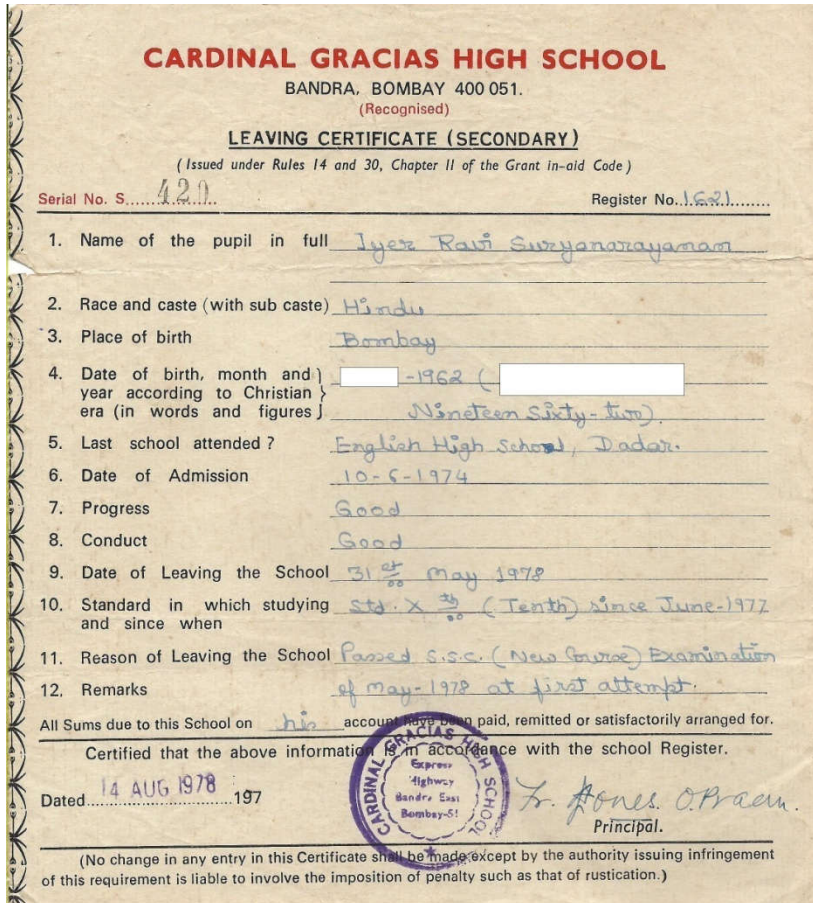 CARDINAL GRACIAS HIGH SCHOOL
BANDRA, BOMBAY 400 051.
(Recognised)
LEAVING CERTIFICATE (SECONDARY)
(Issued under Rules 14 and 30, Chapter II of the Grant in-aid Code)
Serial No. S......420. Register No..1621........
1. Name of the pupil in full Iyer Ravi Suryanarayanan
2. Race and caste (with sub caste) Hindu
3. Place of birth Bombay
4. Date of birth, month and -1962 (
year according to Christian
era (in words and figures Nineteen Sixty-two).
5. Last school attended? English High School, Dadar.
6. Date of Admission 10-6-1974
7. Progress Good
8. Conduct Good
9. Date of Leaving the School 31st May 1978
10. Standard in which studying Std. X th (Tenth) since June-1977
and since when
11. Reason of Leaving the School Passed S.S.C. (New Course) Examination
12. Remarks of May-1978 at first attempt.
All Sums due to this School on his account have been paid, remitted or satisfactorily arranged for.
Certified that the above information is in accordance with the school Register.
Dated 14 AUG 1978 197
CARDINAL GRACIAS HIGH SCHOOL
Express
Highway
Bandra East
Bombay-51
Principal.
(No change in any entry in this Certificate shall be made except by the authority issuing infringement
of this requirement is liable to involve the imposition of penalty such as that of rustication.)